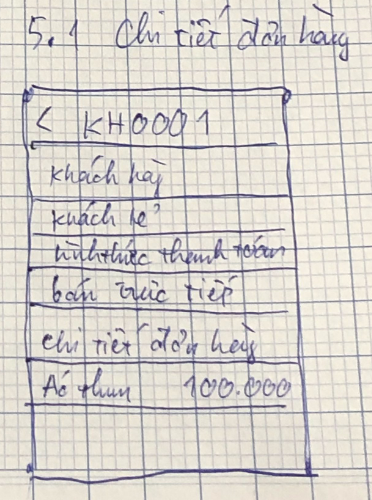 5.1 Chi tiết đơn hàng
< KH0001
khách hàg
khách lẻ
hình thức thanh toán
bán trực tiếp
chi tiết đơn hàg
Áo thun 100.000